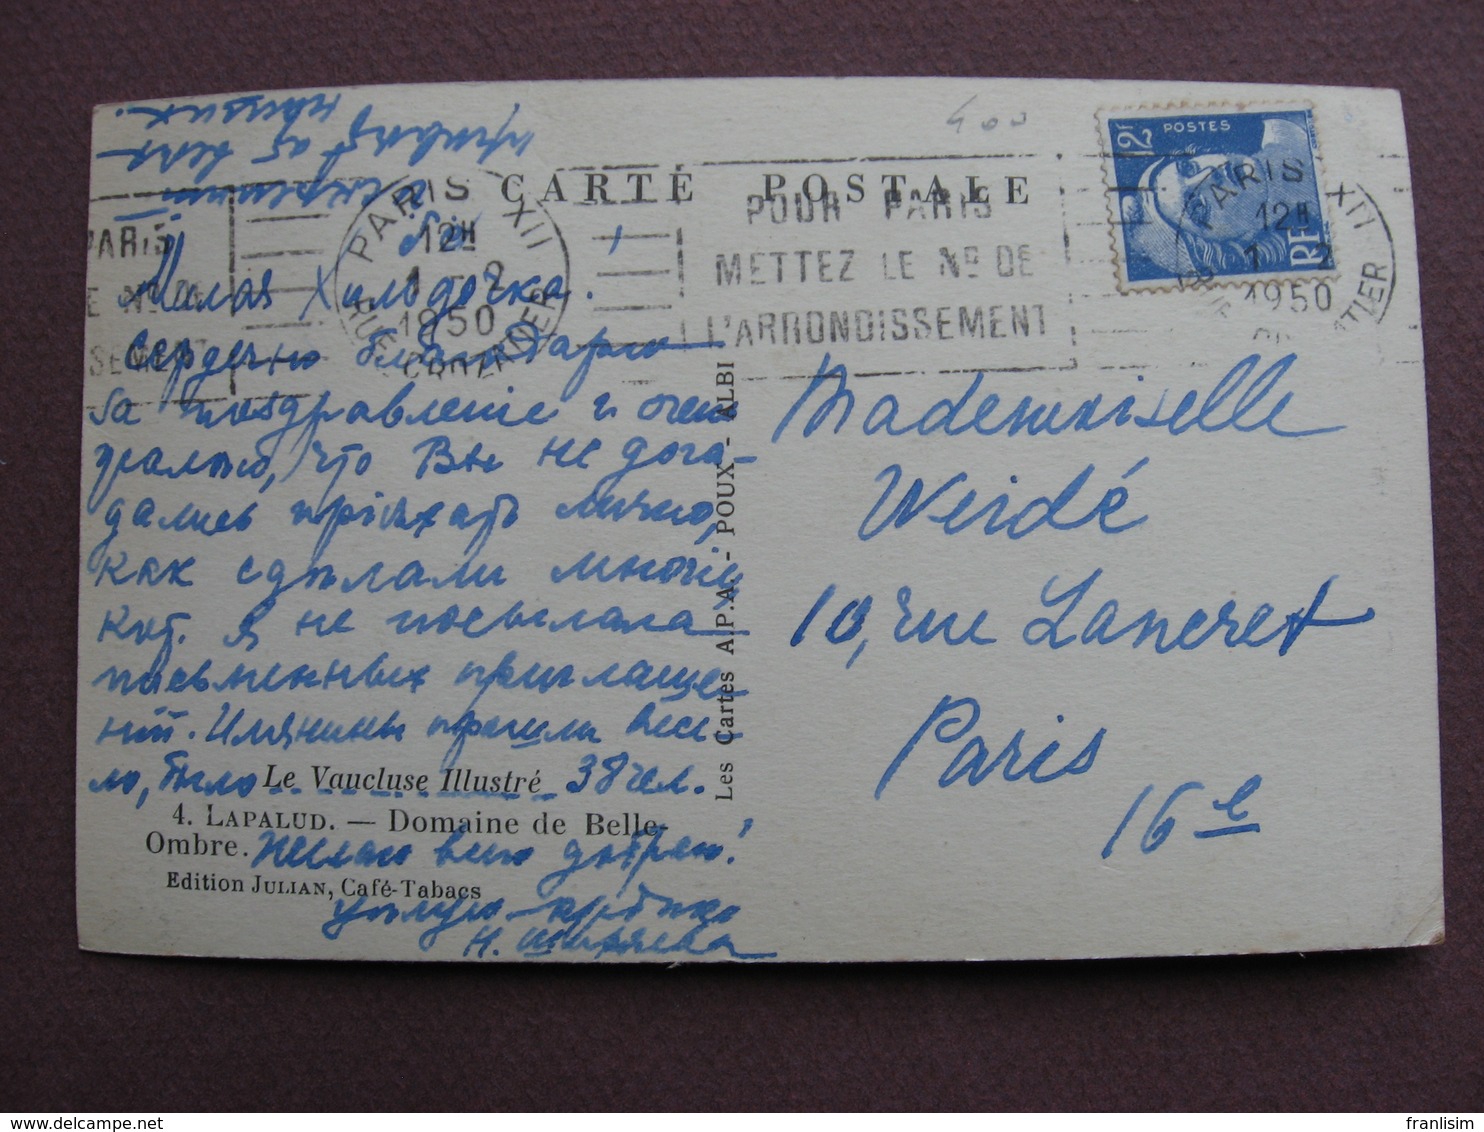 CARTE POSTALE
400
2F
POSTES
RF
PARIS XII
12H
1 - 2
1950
RUE CROZATIER
POUR PARIS
METTEZ LE No DE
L'ARRONDISSEMENT
PARIS XII
12H
1 2
1950
Милая Холодочка!
Сердечно благодарю
за поздравленіе и очень
жалью, что Вы не дога-
дались пріѣхать лично,
как сдѣлали многіе,
кот. я не посылала
письменных приглаше-
ній. Имянины прошли весе-
ло, было 38 чел.
Желаю всего добраго!
Цѣлую крѣпко
Н.
Le Vaucluse Illustré
4. LAPALUD. — Domaine de Belle-
Ombre.
Edition JULIAN, Café-Tabacs
Les Cartes A.P.A. - POUX - ALBI
Mademoiselle
Weidé
10, rue Lancret
Paris
16e
franlisim